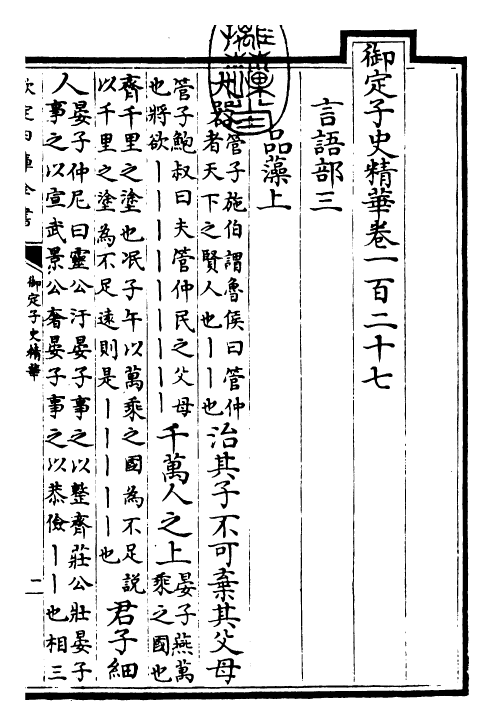 御定子史精華卷一百二十七
言語部三
品藻上
大器
管子施伯謂魯侯曰管仲
者天下之賢人也丨丨也
治其子不可棄其父母
管子鮑叔曰夫管仲民之父母
也將欲丨丨丨丨丨丨丨丨
千萬人之上
晏子燕萬
乘之國也
齊千里之塗也泯子午以萬乘之國為不足說
以千里之塗為不足遠則是丨丨丨丨丨也
君子細
人
晏子仲尼曰靈公汙晏子事之以整齊莊公壯晏子
事之以宣武景公奢晏子事之以恭儉丨丨也相三
欽定四庫全書
御定子史精華
二